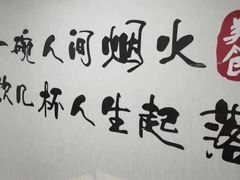 一碗人间烟火
饮几杯人生起落
美食